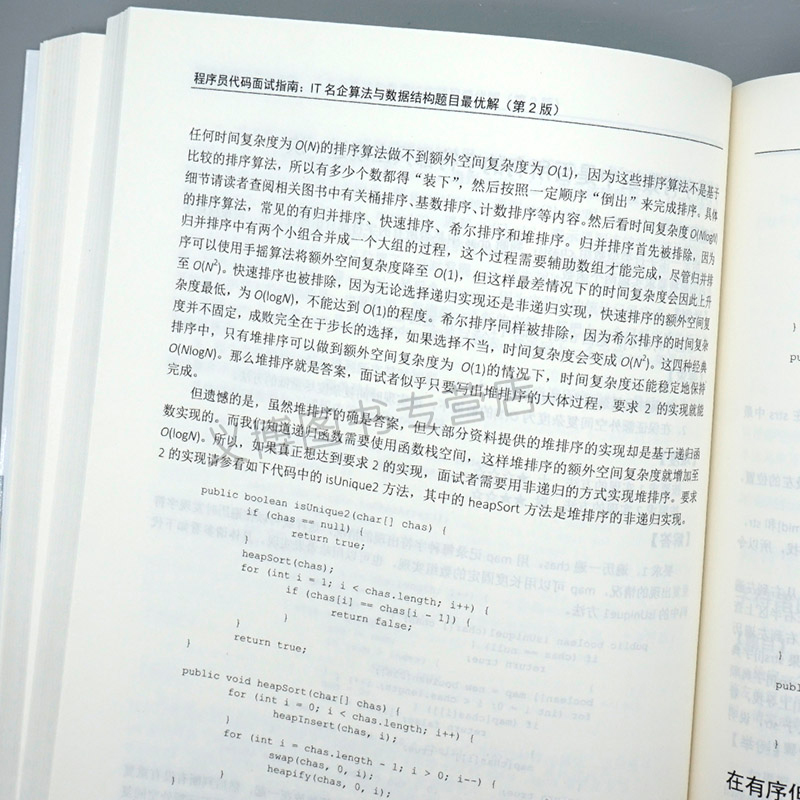 程序员代码面试指南：IT 名企算法与数据结构题目最优解（第 2 版）
任何时间复杂度为 O(N)的排序算法做不到额外空间复杂度为 O(1)，因为这些排序算法不是基于
比较的排序算法，所以有多少个数都得“装下”，然后按照一定顺序“倒出”来完成排序。具体
细节请读者查阅相关图书中有关桶排序、基数排序、计数排序等内容。然后看时间复杂度 O(NlogN)
的排序算法，常见的有归并排序、快速排序、希尔排序和堆排序。归并排序首先被排除，因为
归并排序中有两个小组合并成一个大组的过程，这个过程需要辅助数组才能完成，尽管归并排
序可以使用手摇算法将额外空间复杂度降至 O(1)，但这样最差情况下的时间复杂度会因此上升
至 O(N²)。快速排序也被排除，因为无论选择递归实现还是非递归实现，快速排序的额外空间复
杂度最低，为 O(logN)，不能达到 O(1)的程度。希尔排序同样被排除，因为希尔排序的时间复杂
度并不固定，成败完全在于步长的选择，如果选择不当，时间复杂度会变成 O(N²)。这四种经典
排序中，只有堆排序可以做到额外空间复杂度为 O(1)的情况下，时间复杂度还能稳定地保持
O(NlogN)。那么堆排序就是答案，面试者似乎只要写出堆排序的大体过程，要求 2 的实现就能
完成。
但遗憾的是，虽然堆排序的确是答案，但大部分资料提供的堆排序的实现却是基于递归函
数实现的。而我们知道递归函数需要使用函数栈空间，这样堆排序的额外空间复杂度就增加至
O(logN)。所以，如果真正想达到要求 2 的实现，面试者需要用非递归的方式实现堆排序。要求
2 的实现请参看如下代码中的 isUnique2 方法，其中的 heapSort 方法是堆排序的非递归实现。
public boolean isUnique2(char[] chas) {
if (chas == null) {
return true;
}
heapSort(chas);
for (int i = 1; i < chas.length; i++) {
if (chas[i] == chas[i - 1]) {
return false;
}
}
return true;
}
public void heapSort(char[] chas) {
for (int i = 0; i < chas.length; i++) {
heapInsert(chas, i);
}
for (int i = chas.length - 1; i > 0; i--) {
swap(chas, 0, i);
heapify(chas, 0, i);
}
}
图书专营店
}
pu
}
}
publ
在有序但